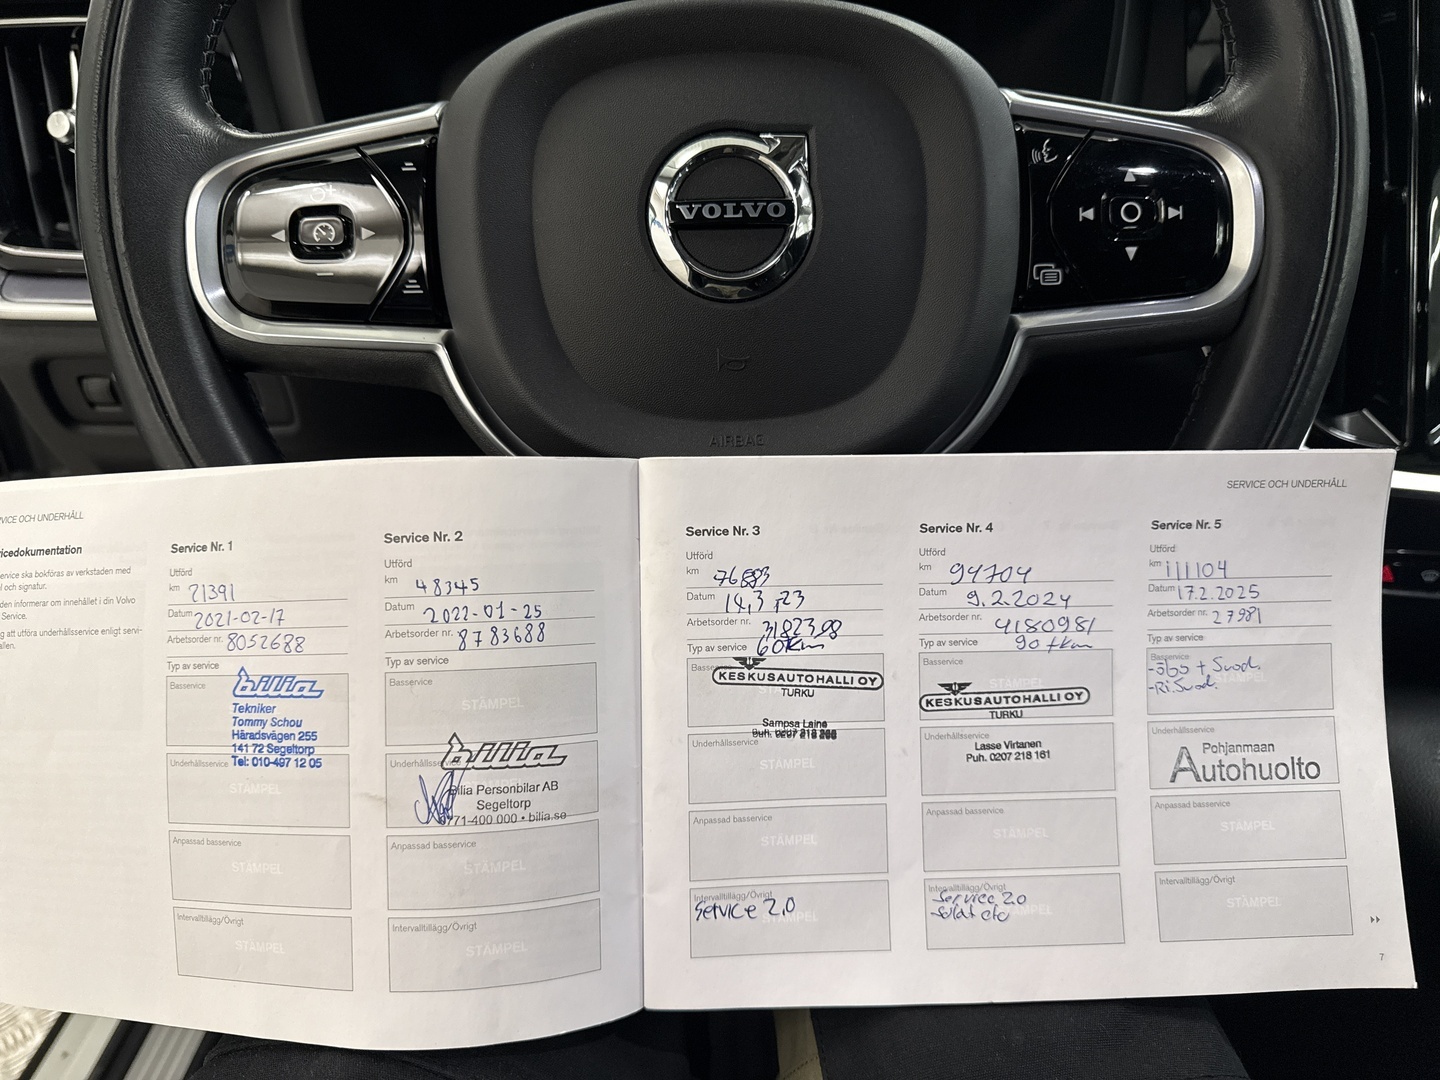 VOLVO
AIRBAG
SERVICE OCH UNDERHÅLL
ervice ska bokföras av verkstaden med
l och signatur.
den informerar om innehållet i din Volvo
Service.
g att utföra underhållsservice enligt servi-
Service Nr. 1
Utförd
km 21391
Datum 2021-02-17
Arbetsorder nr. 8052688
Typ av service
Basservice
bilia
Tekniker
Tommy Schou
Häradsvägen 255
141 72 Segeltorp
Underhållsservice Tel: 010-497 12 05
STÄMPEL
Anpassad basservice
STÄMPEL
Intervalltillägg/Övrigt
STÄMPEL
Service Nr. 2
Utförd
km 48345
Datum 2022-01-25
Arbetsorder nr. 8783688
Typ av service
Basservice
STÄMPEL
bilia
Bilia Personbilar AB
Segeltorp
0771-400 000 • bilia.se
Anpassad basservice
STÄMPEL
Intervalltillägg/Övrigt
STÄMPEL
Service Nr. 3
Utförd
km
Datum 14,3,23
Arbetsorder nr.
Typ av service 60tkm
KESKUSAUTOHALLI OY
TURKU
Sampsa Laine
Underhållsservice
STÄMPEL
Anpassad basservice
STÄMPEL
Intervalltillägg/Övrigt
Service 2.0
STÄMPEL
Service Nr. 4
Utförd
km 94704
Datum 9.2.2024
Arbetsorder nr. 4180981
Typ av service 90 tkm
Basservice
STÄMPEL
KESKUSAUTOHALLI OY
TURKU
Underhållsservice
Lasse Virtanen
Puh. 0207 218 161
Anpassad basservice
STÄMPEL
Intervalltillägg/Övrigt
Service 2.0
STÄMPEL
SERVICE OCH UNDERHÅLL
Service Nr. 5
Utförd
km 111104
Datum 17.2.2025
Arbetsorder nr. 27981
Typ av service
Basservice
STÄMPEL
Underhållsservice
Pohjanmaan
Autohuolto
Anpassad basservice
STÄMPEL
Intervalltillägg/Övrigt
STÄMPEL
7